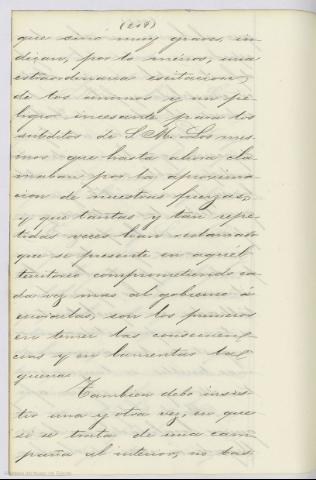 (218)
que sino muy graves, in-
dican, por lo menos, una
estraordinaria escitacion
de los animos y un pe-
ligro incesante para los
subditos de S. M. Los mis-
mos que hasta ahora cla-
maban por la aproxima-
cion de nuestras fuerzas,
y que tantas y tan repe-
tidas veces han reclamado
que se presente en aquel
territorio comprometiendo ca-
da vez mas al gobierno á
enviarlas, son los primeros
en temer las consecuen-
cias y en lamentar la
guerra.
Tambien debo insis-
tir una y otra vez, en que
si se trata de una cam-
paña al interior, no bas-